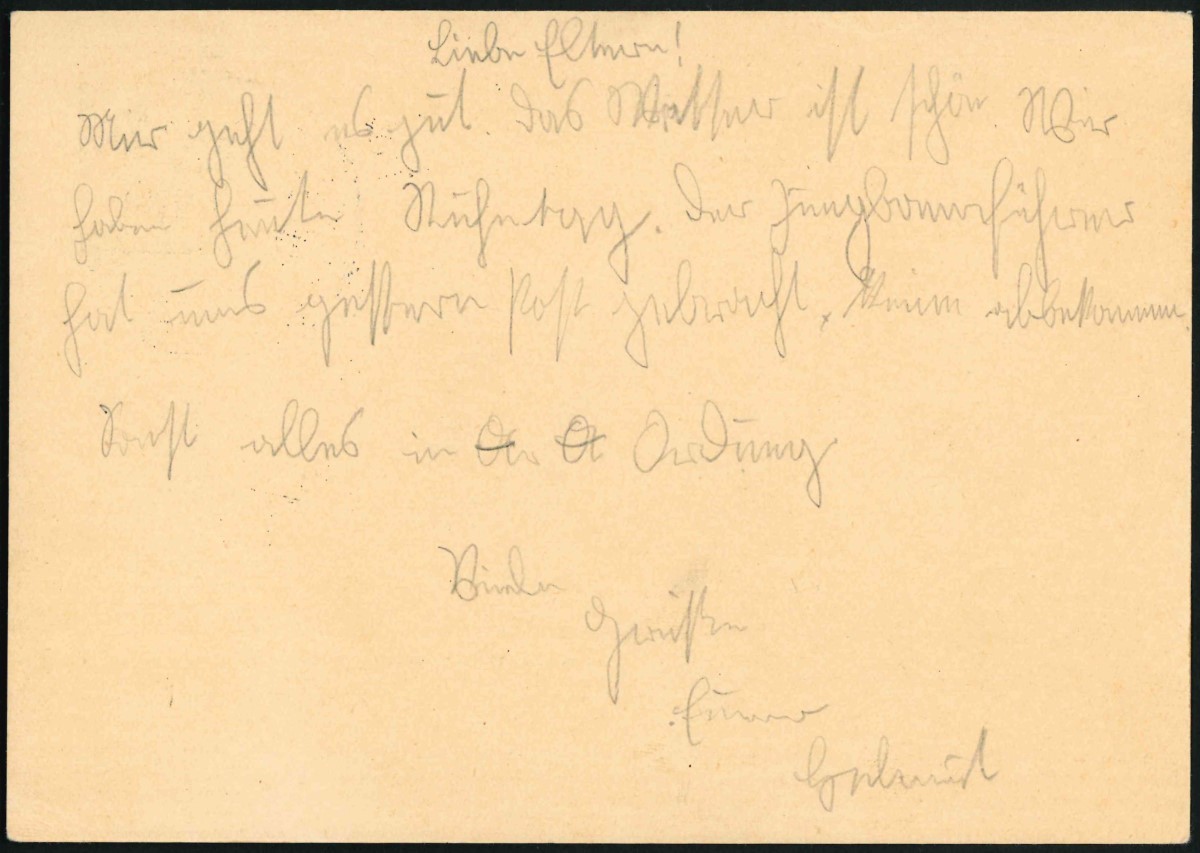 Liebe Eltern!
Mir geht es gut. Das Wetter ist schön. Wir
haben heute Ruhetag. Der Jungbannführer
hat uns gestern Post gebracht. abbekommen.
Sonst alles in Ordung
Viele
Grüsse
Euer
Helmut